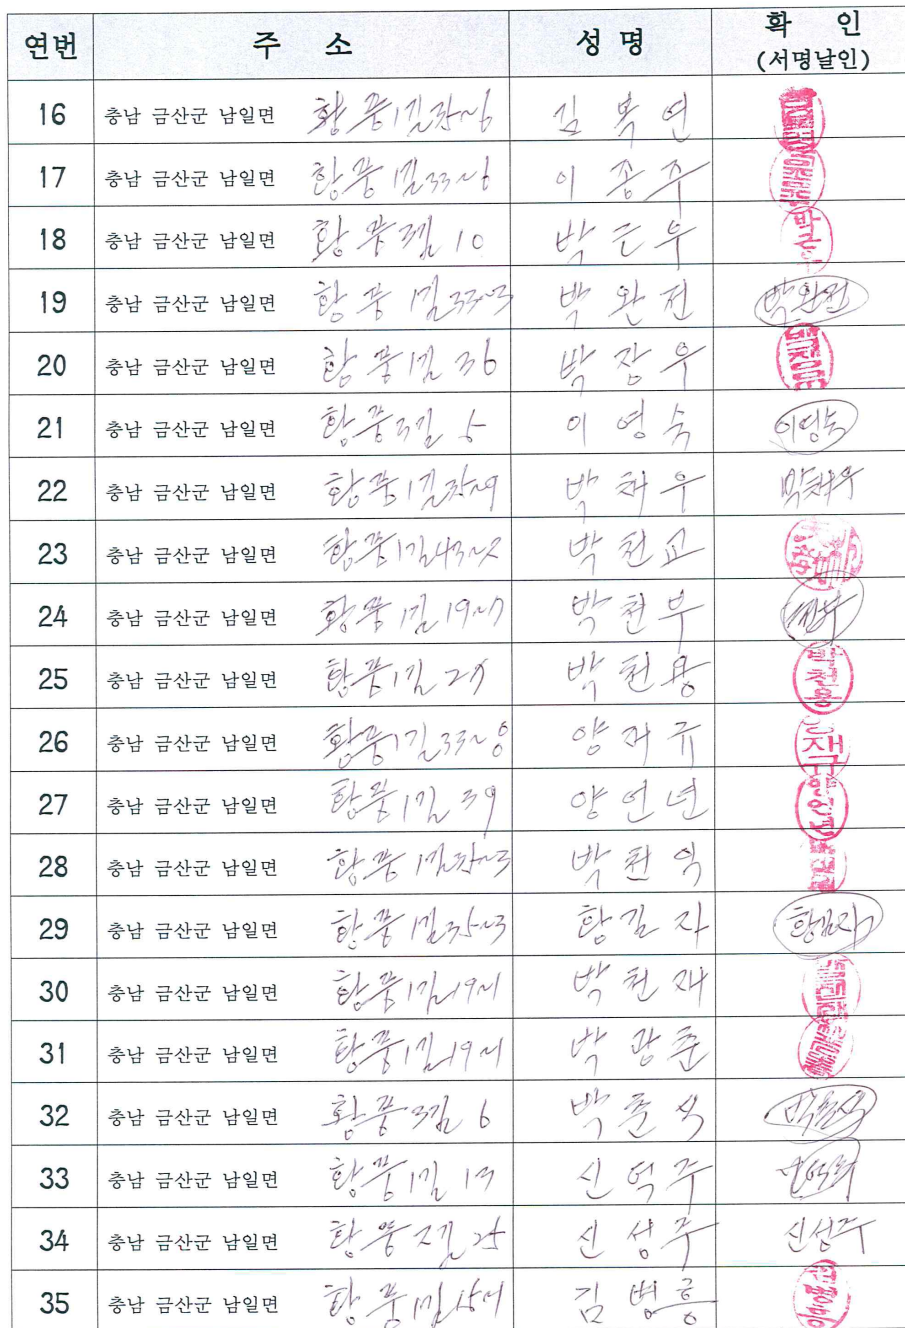 연번 주 소 성 명 확 인
(서명날인)
16 충남 금산군 남일면 황풍1길 김복연
17 충남 금산군 남일면 황풍1길 33-6 이종주
18 충남 금산군 남일면 황풍3길 10 박근우 박근우
19 충남 금산군 남일면 황풍1길 33-3 박완전 박완전
20 충남 금산군 남일면 황풍1길 36 박장우
21 충남 금산군 남일면 황풍3길 5 이영숙 이영숙
22 충남 금산군 남일면 황풍1길 박채우 박채우
23 충남 금산군 남일면 황풍1길 43-2 박천교
24 충남 금산군 남일면 황풍1길 19-7 박천부
25 충남 금산군 남일면 황풍1길 박천용 박천용
26 충남 금산군 남일면 황풍1길 33-8 양재규 재규
27 충남 금산군 남일면 황풍1길 39 양언년
28 충남 금산군 남일면 황풍1길 박천익
29 충남 금산군 남일면 황풍1길 35-3 황길자 황길자
30 충남 금산군 남일면 황풍1길 19-1 박천재
31 충남 금산군 남일면 황풍1길 19-1 박광춘
32 충남 금산군 남일면 황풍3길 6 박준식 박준식
33 충남 금산군 남일면 황풍1길 13 신덕주
34 충남 금산군 남일면 황풍2길 25 신성주 신성주
35 충남 금산군 남일면 황풍1길 김병흥